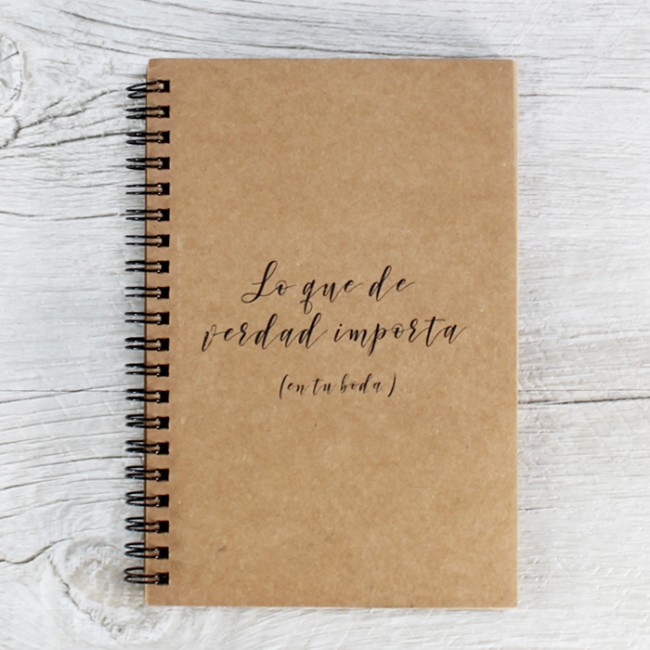 Lo que de
verdad importa
(en tu boda)